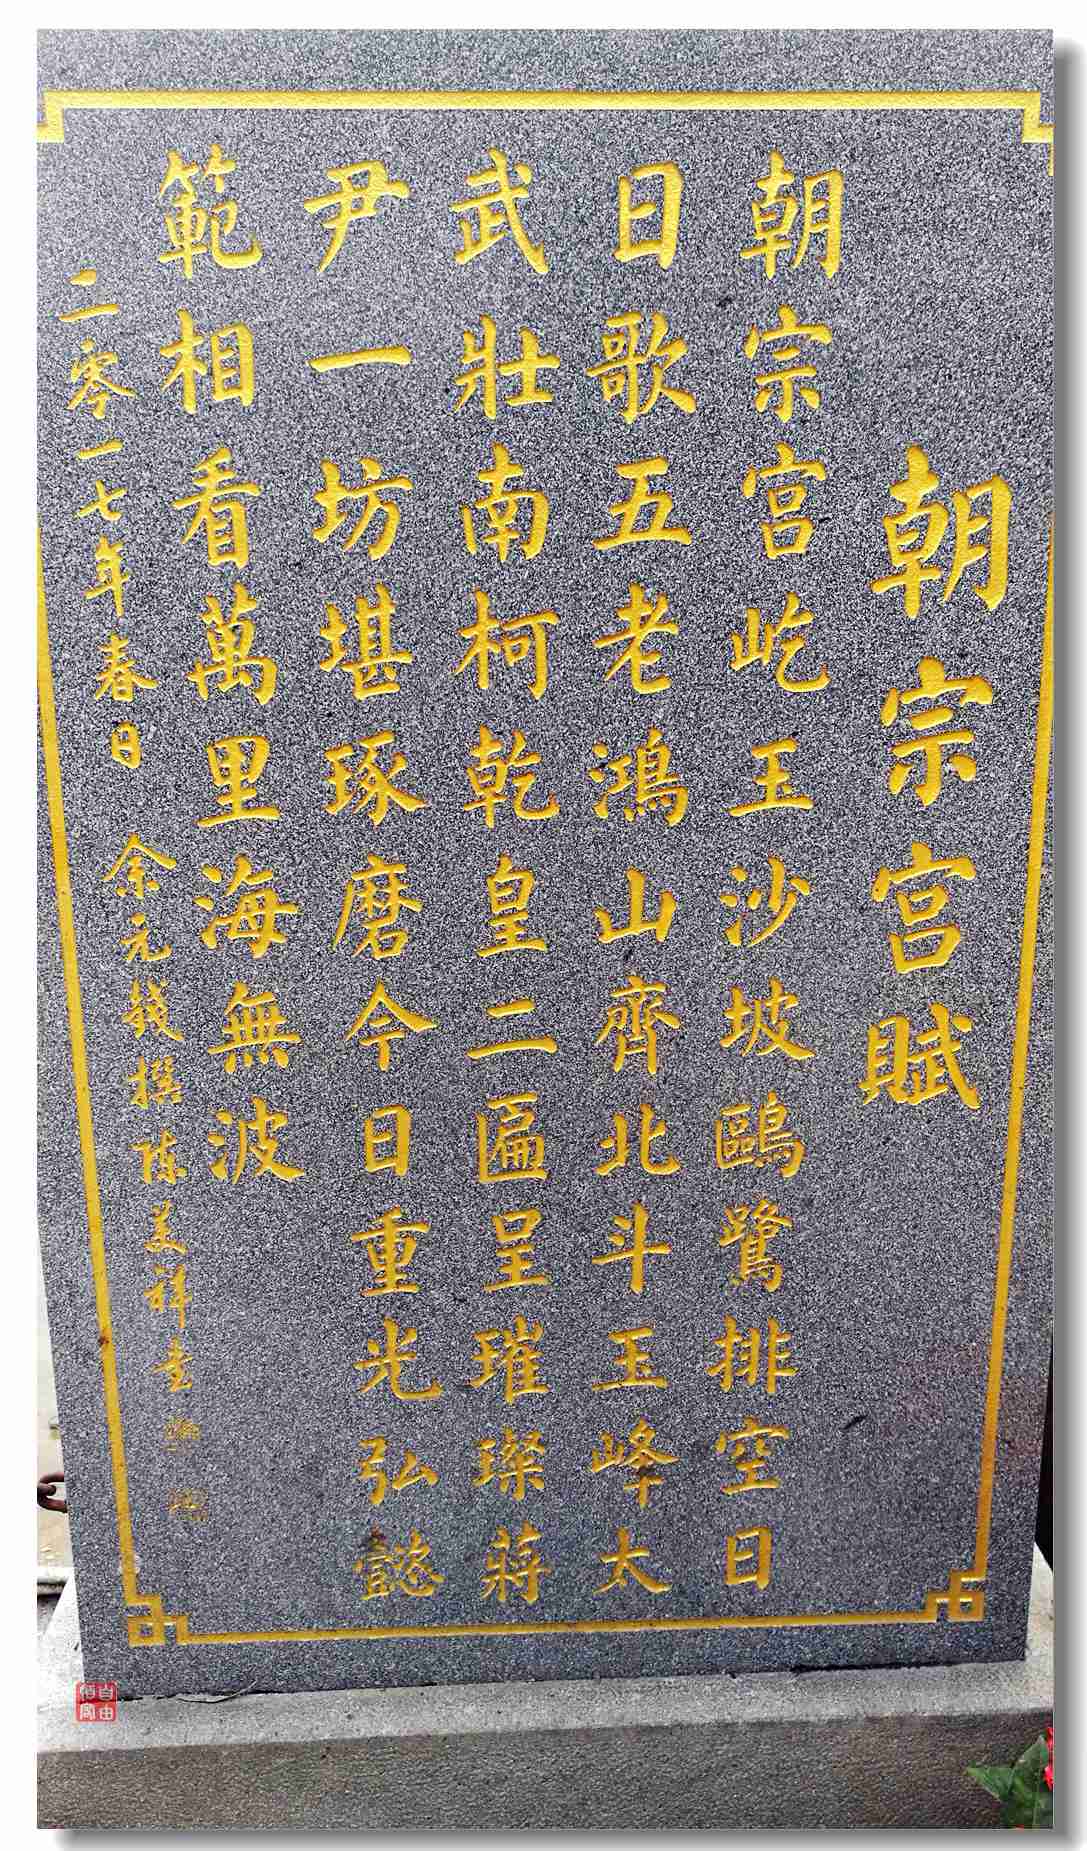 朝宗宮賦
朝宗宮屹玉沙坡鷗鷺排空日
日歌五老鴻山齊北斗玉峰太
武壯南柯乾皇二匾呈璀璨蔣
尹一坊堪琢磨今日重光弘懿
範相看萬里海無波
二零一七年春日 余元錢撰 陈美祥书
自由